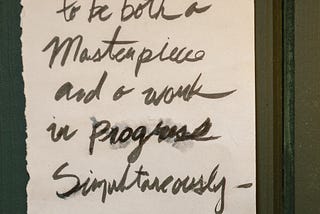 to be both a
Masterpiece
and a work
in progress
Simultaneously -